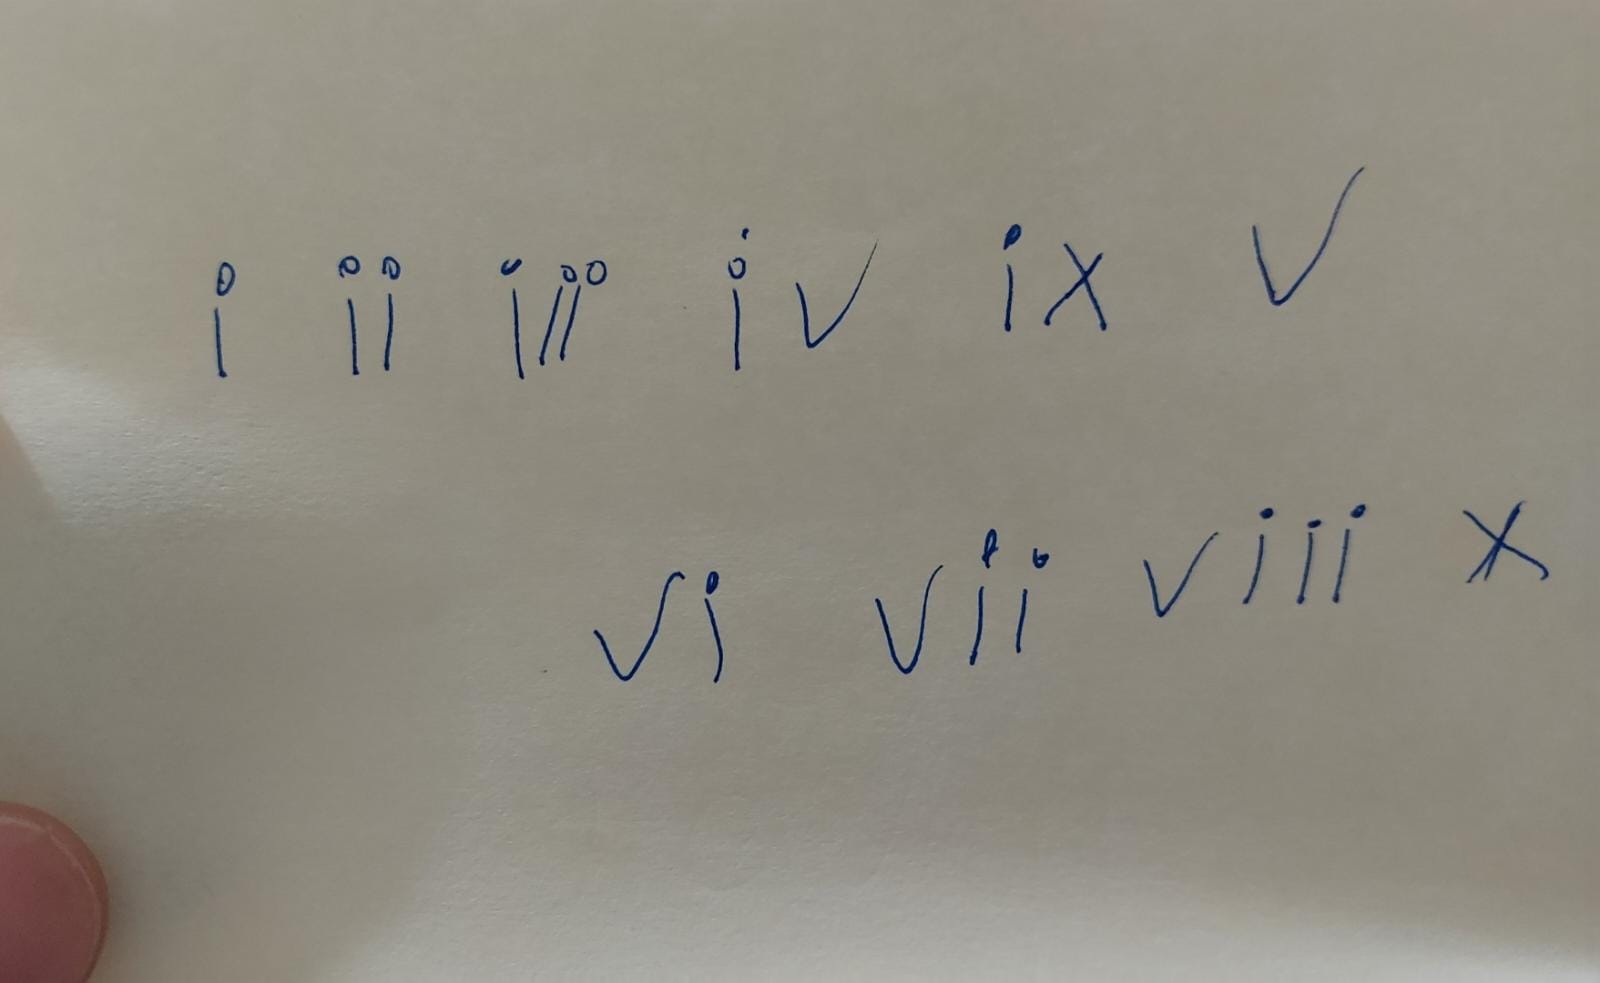 i ii iii iv ix v
vi vii viii x